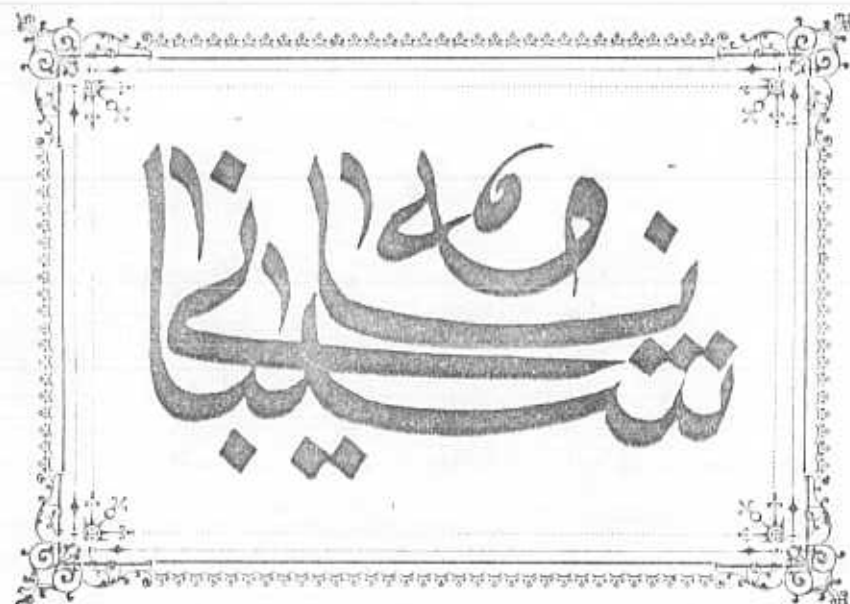 شیبانی نامه